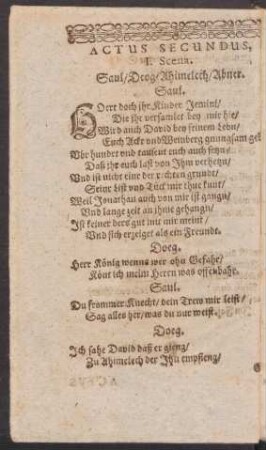 ACTUS SECUNDUS,
I. Scena.
Saul/Doeg/Ahimelech/Abner.
Saul.
Hoert doch jhr Kinder Jemini/
Die jhr versamlet bey mir hie/
Wird auch David bey seinem Lebn/
Euch Ackr und Weinberg gnungsam gebn
Vbr hundrt und tausent euch auch setzn/
Daß jhr euch last von Jhm verhetzn/
Vnd ist nicht einr der rechten grundt/
Seine list und Tück mir thue kunt/
Weil Jonathan auch von mir ist gangn/
Vnd lange zeit an jhme gehangn/
Jst keiner ders gut mit mir meint/
Vnd sich erzeiget als ein Freundt.
Doeg.
Herr König wenns wer ohn Gefahr/
Könt ich meim Herrn was offenbahr.
Saul.
Du frommer Knecht/dein Trew mir leist/
Sag alles her/was du nur weist.
Doeg.
Jch sahe David daß er gieng/
Zu Ahimelech der Jhn empfieng/